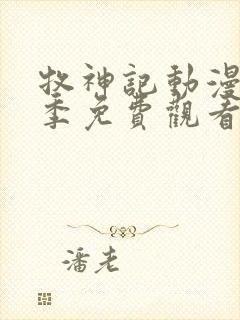 牧神記動漫
季免費觀看
潘老